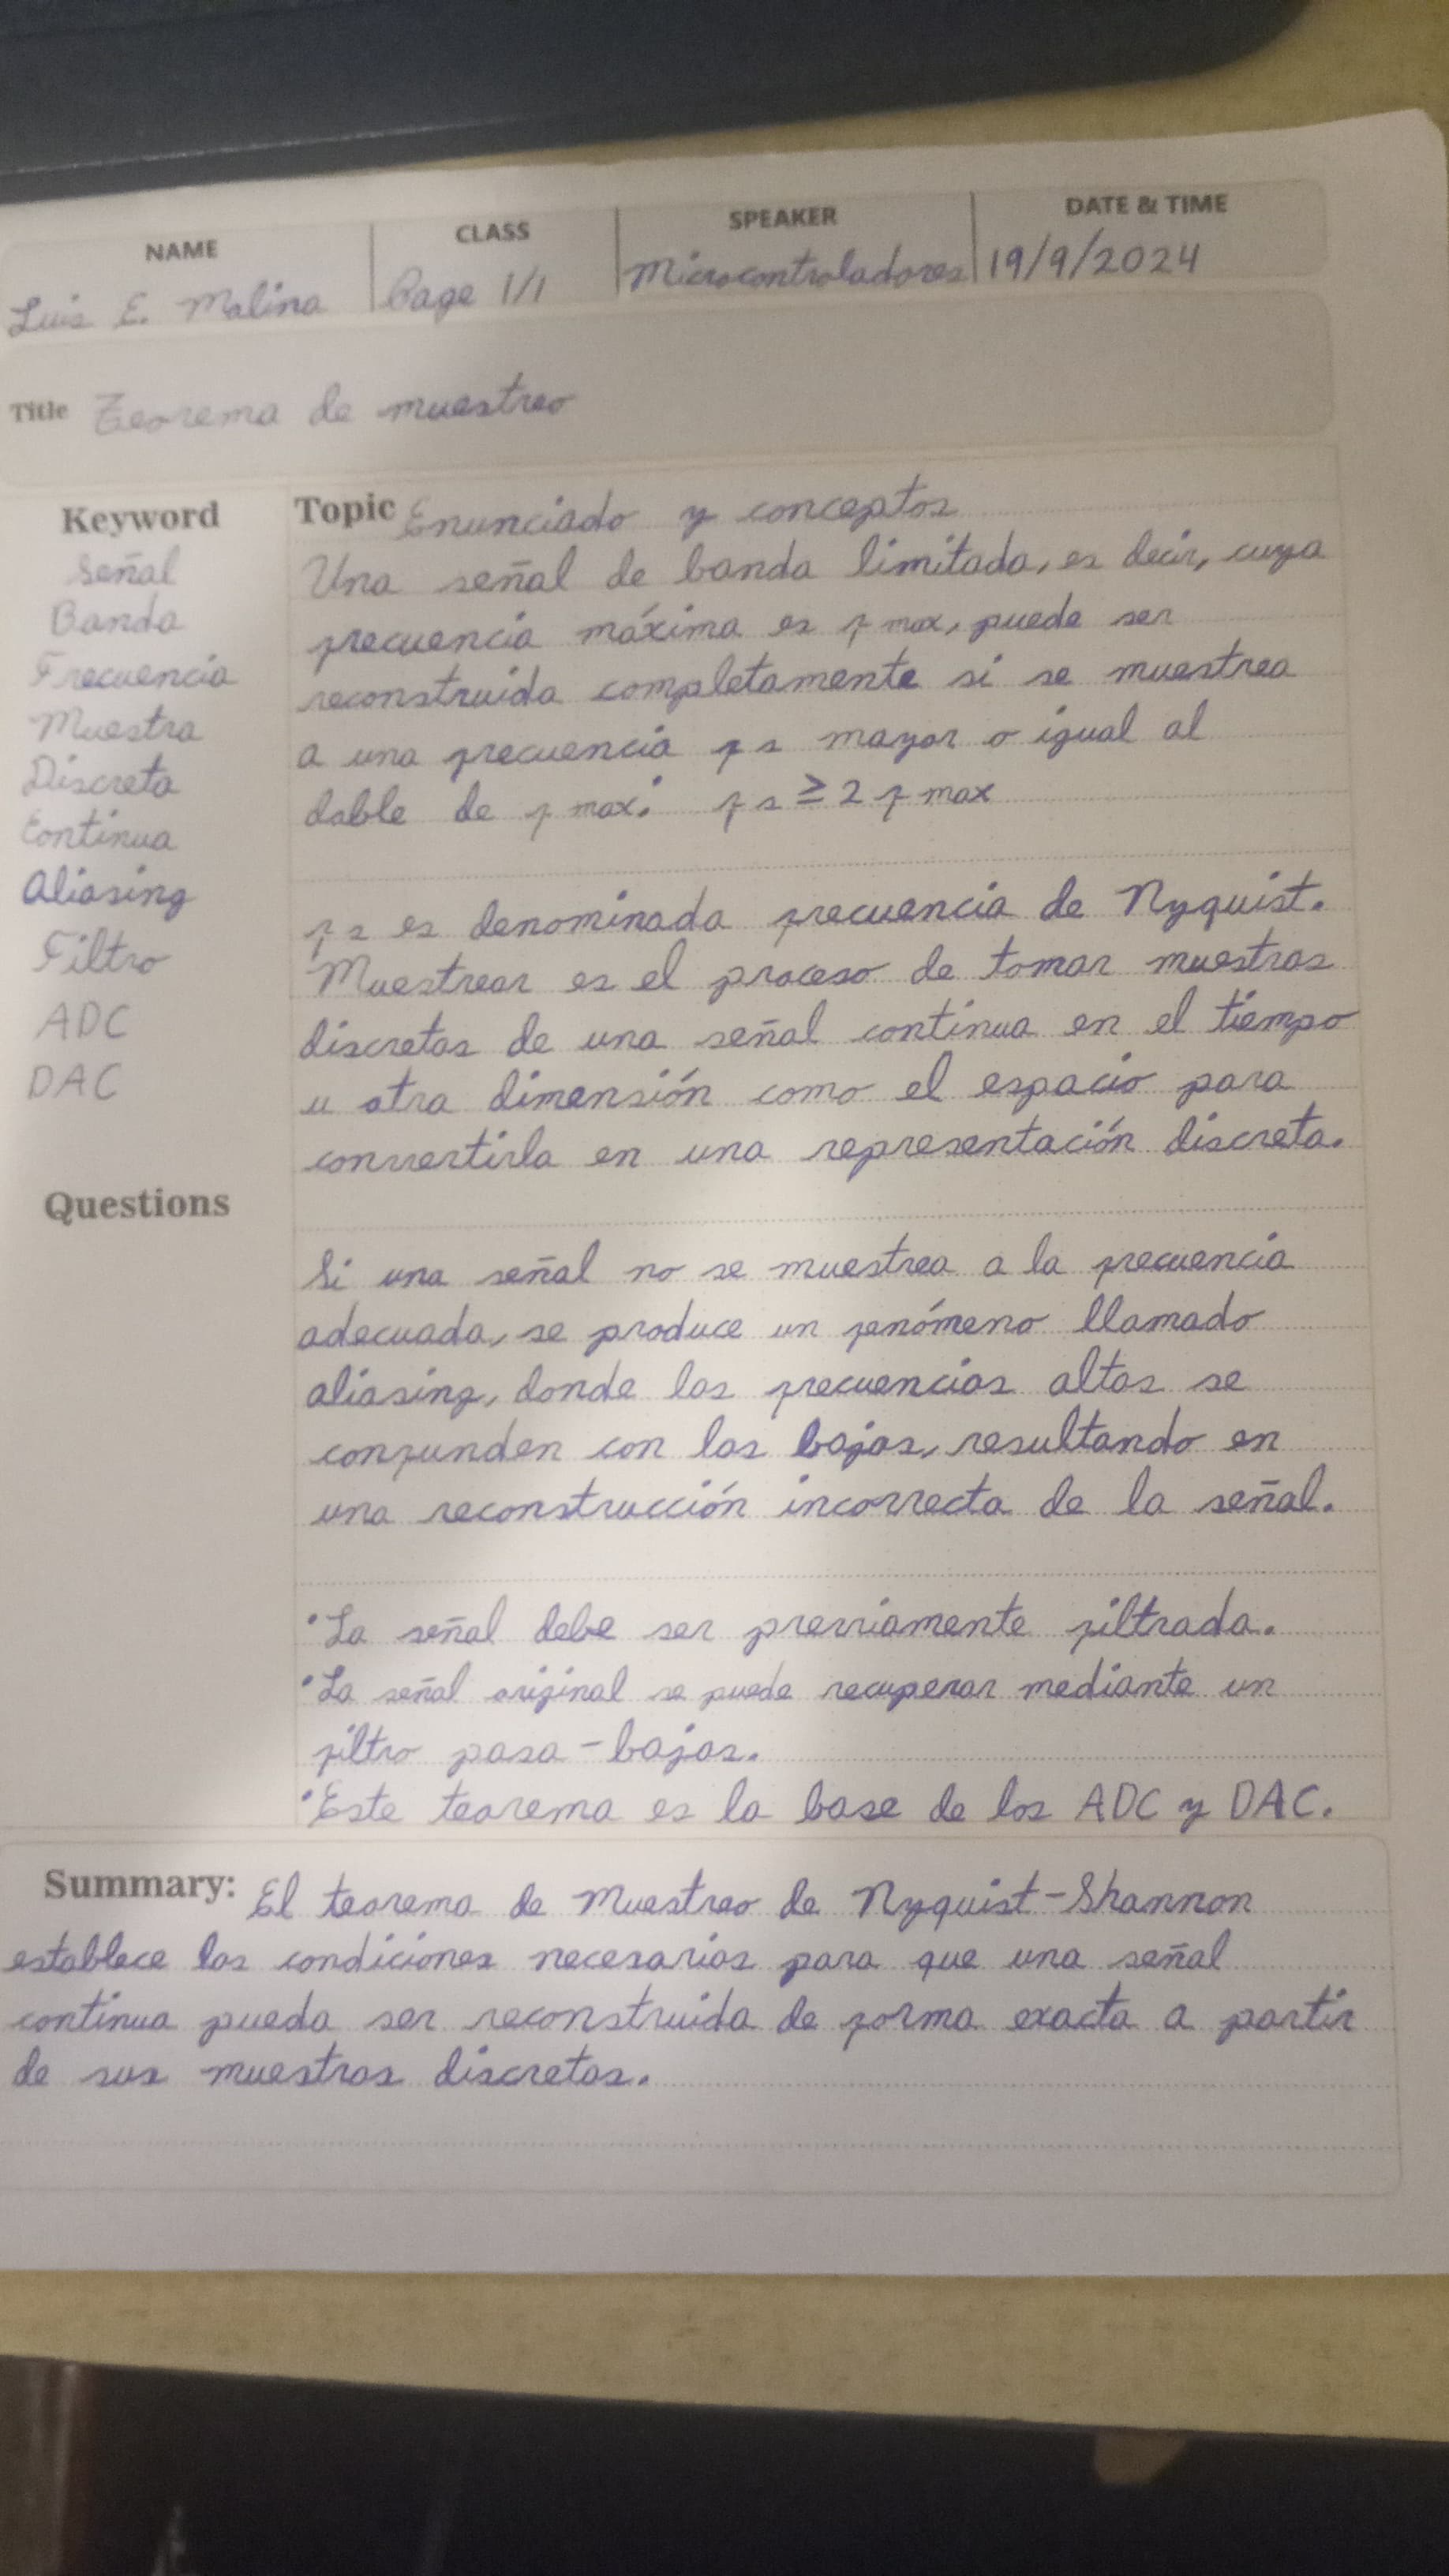 NAME CLASS SPEAKER DATE & TIME
Luis E. Molina Page 1/1 Microcontroladores 19/9/2024
Title Teorema de muestreo
Keyword
Señal
Banda
Frecuencia
Muestra
Discreta
Continua
Aliasing
Filtro
ADC
DAC
Questions
Topic Enunciado y conceptos
Una señal de banda limitada, es decir, cuya
frecuencia máxima es f max, puede ser
reconstruida completamente si se muestrea
a una frecuencia f s mayor o igual al
doble de f max: f s ≥ 2 f max
f s es denominada frecuencia de Nyquist.
Muestrear es el proceso de tomar muestras
discretas de una señal continua en el tiempo
u otra dimensión como el espacio para
convertirla en una representación discreta.
Si una señal no se muestrea a la frecuencia
adecuada, se produce un fenómeno llamado
aliasing, donde las frecuencias altas se
confunden con las bajas, resultando en
una reconstrucción incorrecta de la señal.
• La señal debe ser previamente filtrada.
• La señal original se puede recuperar mediante un
filtro pasa-bajas.
• Este teorema es la base de los ADC y DAC.
Summary: El teorema de Muestreo de Nyquist-Shannon
establece las condiciones necesarias para que una señal
continua pueda ser reconstruida de forma exacta a partir
de sus muestras discretas.